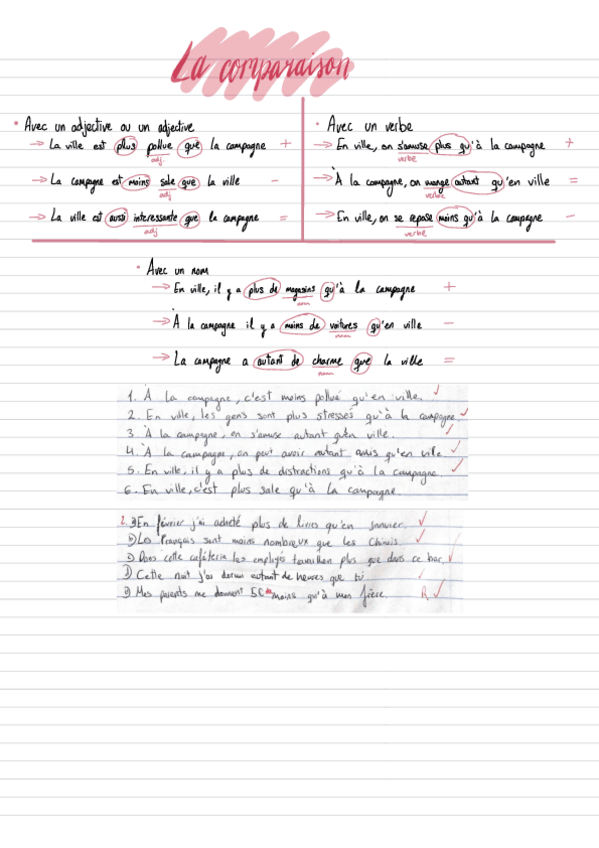 La comparaison
• Avec un adjective ou un adjective
→ La ville est plus pollue que la campagne +
adj.
→ La campagne est moins sale que la ville -
adj
→ La ville est aussi interessante que la campagne =
adj
• Avec un verbe
→ En ville, on s'amuse plus qu'à la campagne +
verbe
→ À la campagne, on mange autant qu'en ville =
verbe
→ En ville, on se repose moins qu'à la campagne -
verbe
• Avec un nom
→ En ville, il y a plus de magasins qu'à la campagne +
nom
→ À la campagne il y a moins de voitures qu'en ville -
nom
→ La campagne a autant de charme que la ville =
nom
1. À la campagne, c'est moins pollué qu'en ville.
2. En ville, les gens sont plus stressés qu'à la campagne
3. À la campagne, on s'amuse autant qu'en ville.
4. À la campagne, on peut avoir autant amis qu'en ville
5. En ville, il y a plus de distractions qu'à la campagne.
6. En ville, c'est plus sale qu'à la campagne
2. En février j'ai acheté plus de livres qu'en janvier.
Les Français sont moins nombreux que les Chinois.
Dans cette cafétéria les employés travaillent plus que dans ce bar.
Cette nuit j'ai dormi autant de heures que tu
Mes parents me donnent 5€ de moins qu'à mon frère. R